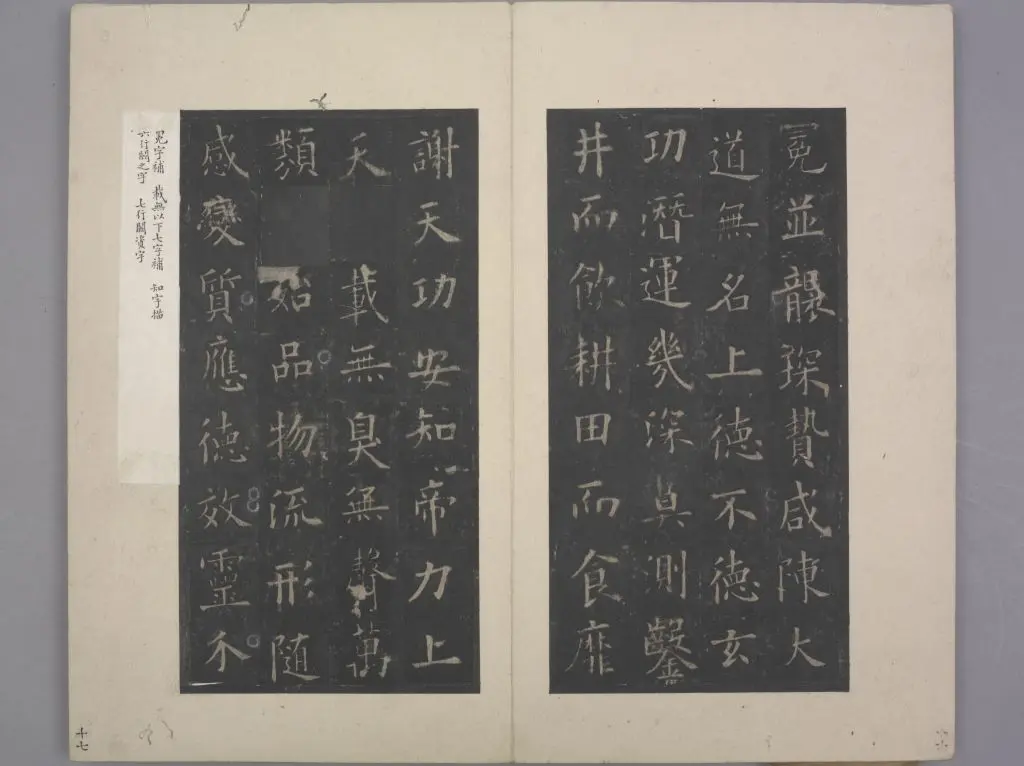 冕並襲琛贄咸陳大
道無名上德不德玄
功潛運幾深莫測鑿
井而飲耕田而食靡
謝天功安知帝力上
天載無臭無聲萬
類始品物流形隨
感變質應德效靈介
冕字補 載無以下七字補 知字描
六行闕之字 七行闕資字
十七